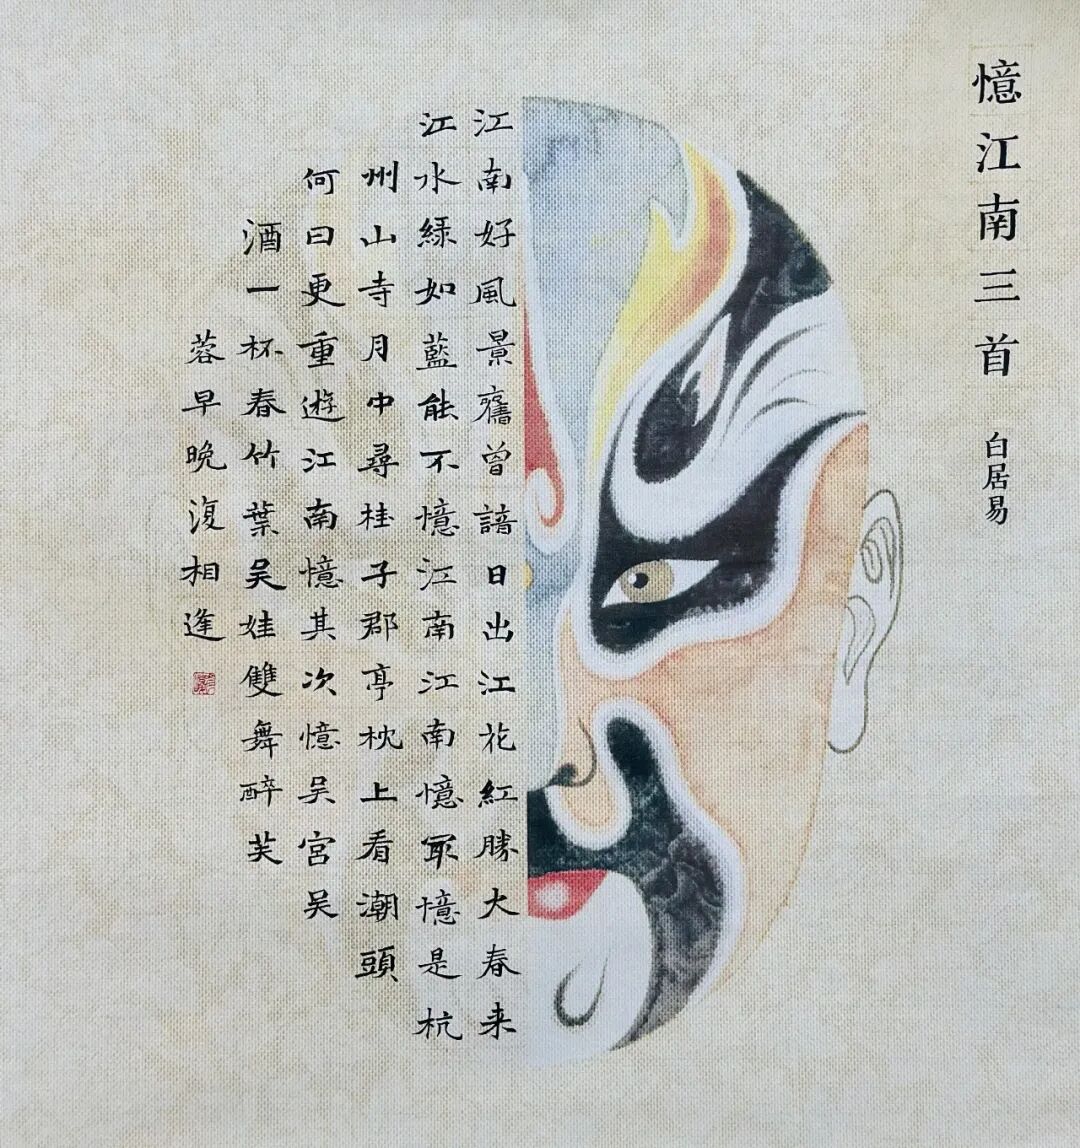 憶江南三首
白居易
江南好風景舊曾諳日出江花紅勝大春来
江水緑如藍能不憶江南江南憶冣憶是杭
州山寺月中尋桂子郡亭枕上看潮頭
何日更重遊江南憶其次憶吴宮吴
酒一杯春竹葉吴娃雙舞醉芙
蓉早晚復相逢